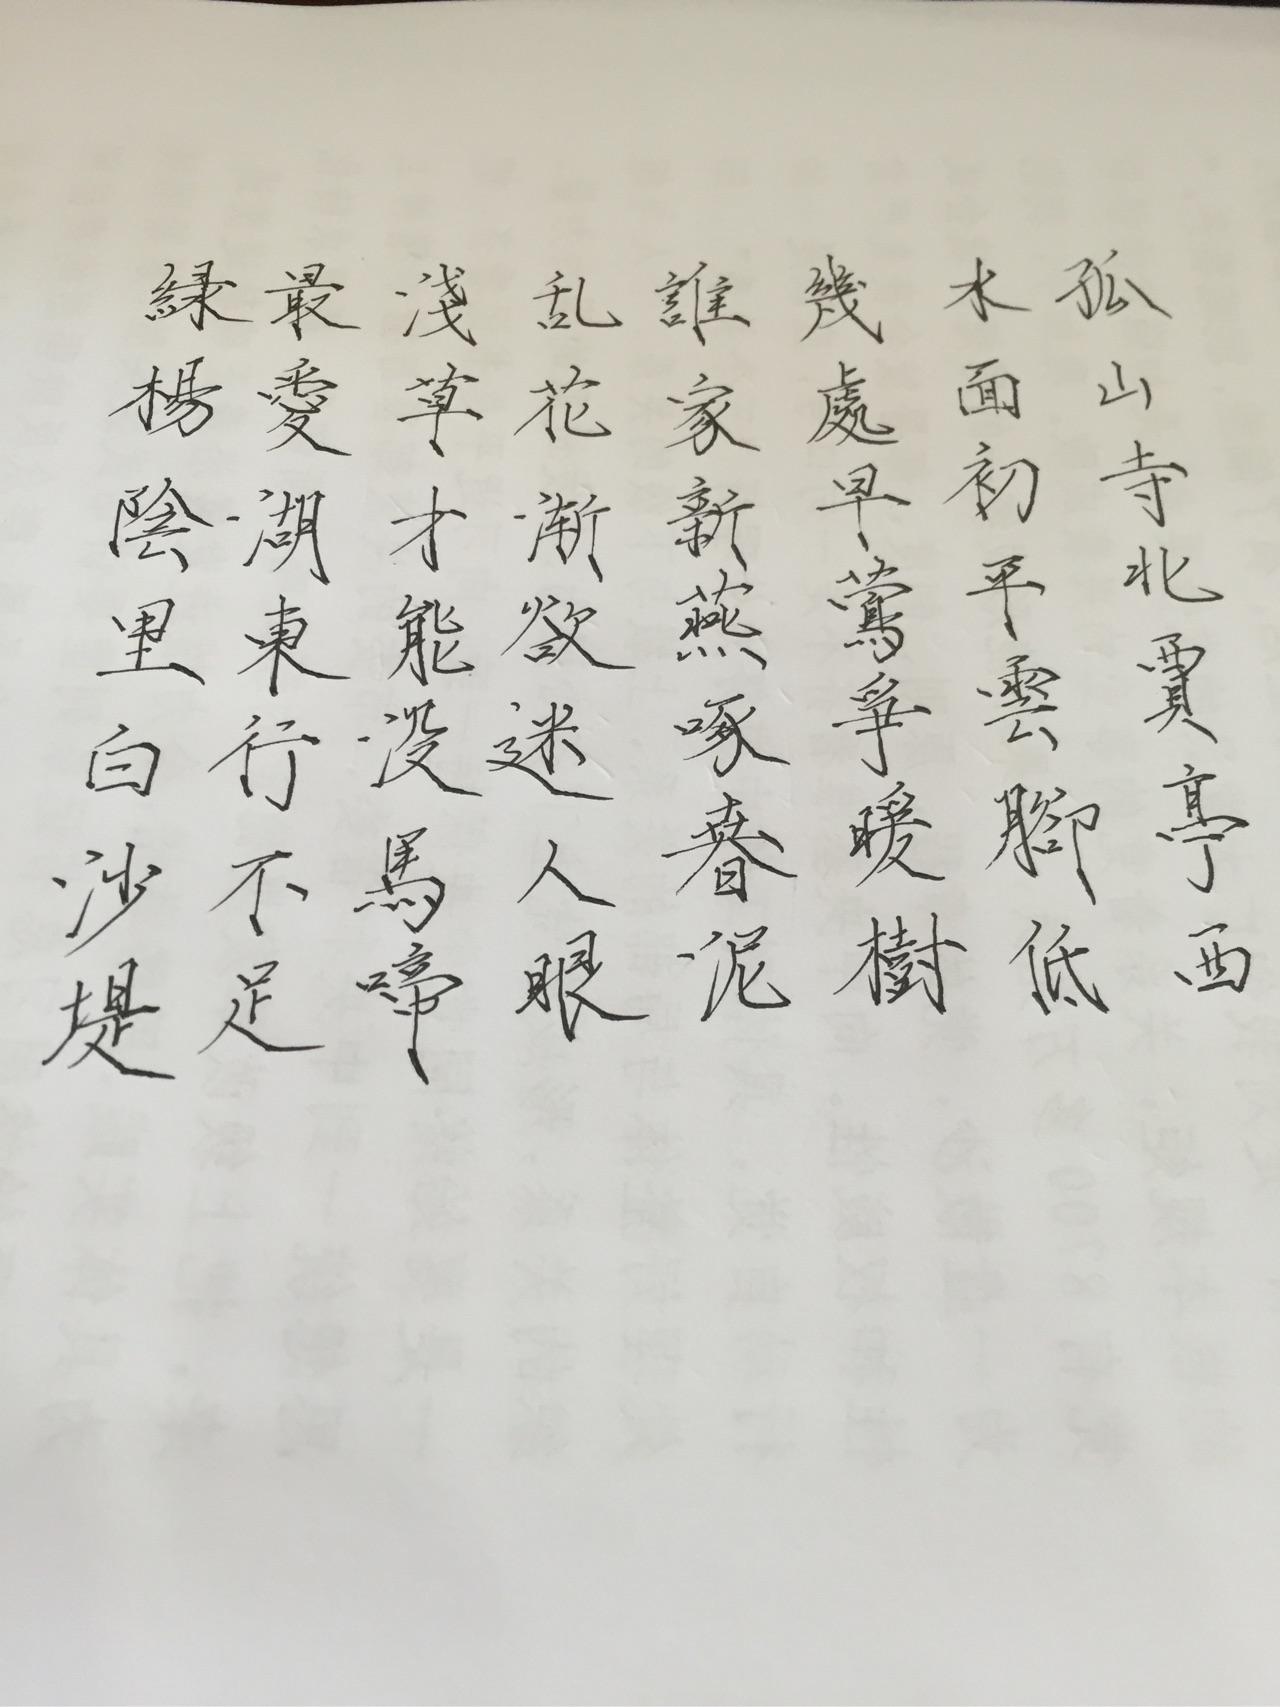 孤山寺北賈亭西
水面初平雲腳低
幾處早鶯爭暖樹
誰家新燕啄春泥
乱花渐欲迷人眼
淺草才能没馬啼
最愛湖東行不足
緑楊陰里白沙堤